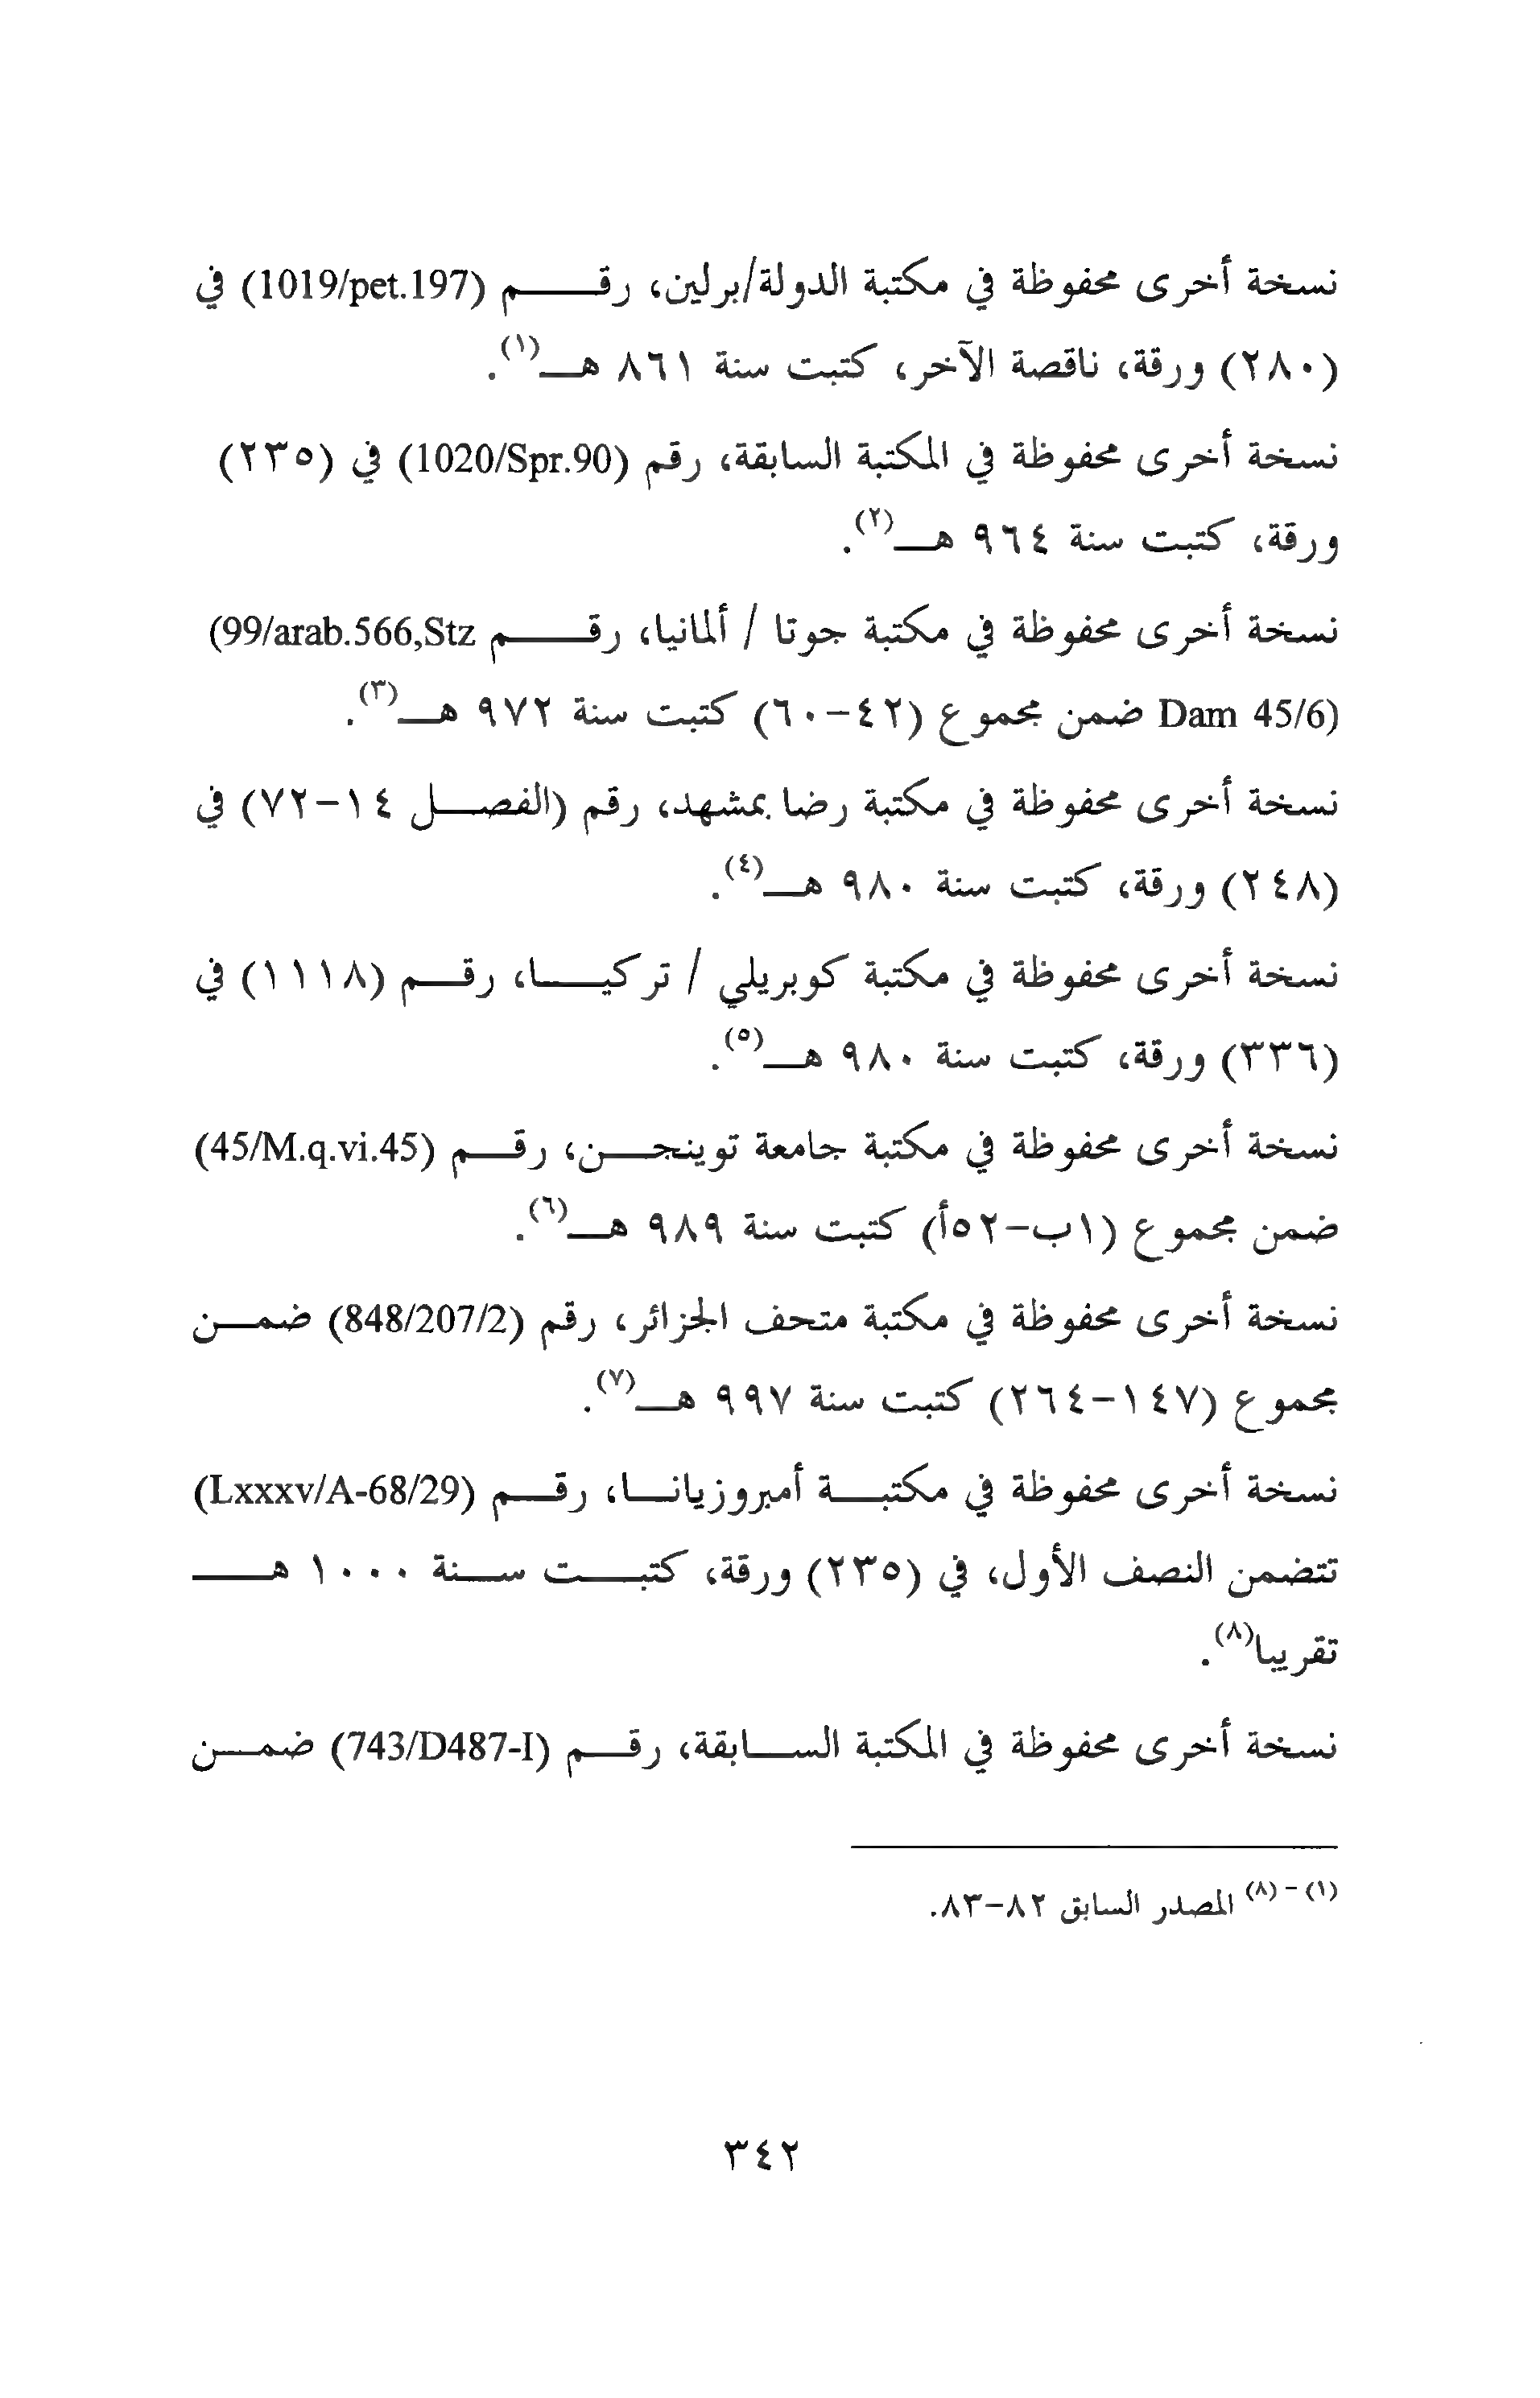 نسخة أخرى محفوظة في مكتبة الدولة/برلين، رقـــــم (1019/pet.197) في
(٢٨٠) ورقة، ناقصة الآخر، كتبت سنة ٨٦١ هـ(١).
نسخة أخرى محفوظة في المكتبة السابقة، رقم (1020/Spr.90) في (٢٣٥)
ورقة، كتبت سنة ٩٦٤ هـ(٢).
نسخة أخرى محفوظة في مكتبة جوتا / ألمانيا، رقـــــم (99/arab.566,Stz
Dam 45/6) ضمن مجموع (٤٢-٦٠) كتبت سنة ٩٧٢ هـ(٣).
نسخة أخرى محفوظة في مكتبة رضا بمشهد، رقم (الفصـــل ١٤-٧٢) في
(٢٤٨) ورقة، كتبت سنة ٩٨٠ هـ(٤).
نسخة أخرى محفوظة في مكتبة كوبريلي / تركيـــا، رقـــم (١١١٨) في
(٣٣٦) ورقة، كتبت سنة ٩٨٠ هـ(٥).
نسخة أخرى محفوظة في مكتبة جامعة توبنجـــن، رقـــم (45/M.q.vi.45)
ضمن مجموع (١ب-٥٢أ) كتبت سنة ٩٨٩ هـ(٦).
نسخة أخرى محفوظة في مكتبة متحف الجزائر، رقم (848/207/2) ضمـــن
مجموع (١٤٧-٢٦٤) كتبت سنة ٩٩٧ هـ(٧).
نسخة أخرى محفوظة في مكتبـــة أمبروزيانـــا، رقـــم (Lxxxv/A-68/29)
تتضمن النصف الأول، في (٢٣٥) ورقة، كتبـــت ســـنة ١٠٠٠ هـــــ
تقريبا(٨).
نسخة أخرى محفوظة في المكتبة الســـابقة، رقـــم (743/D487-I) ضمـــن
(١) - (٨) المصدر السابق ٨٢-٨٣.
٣٤٢